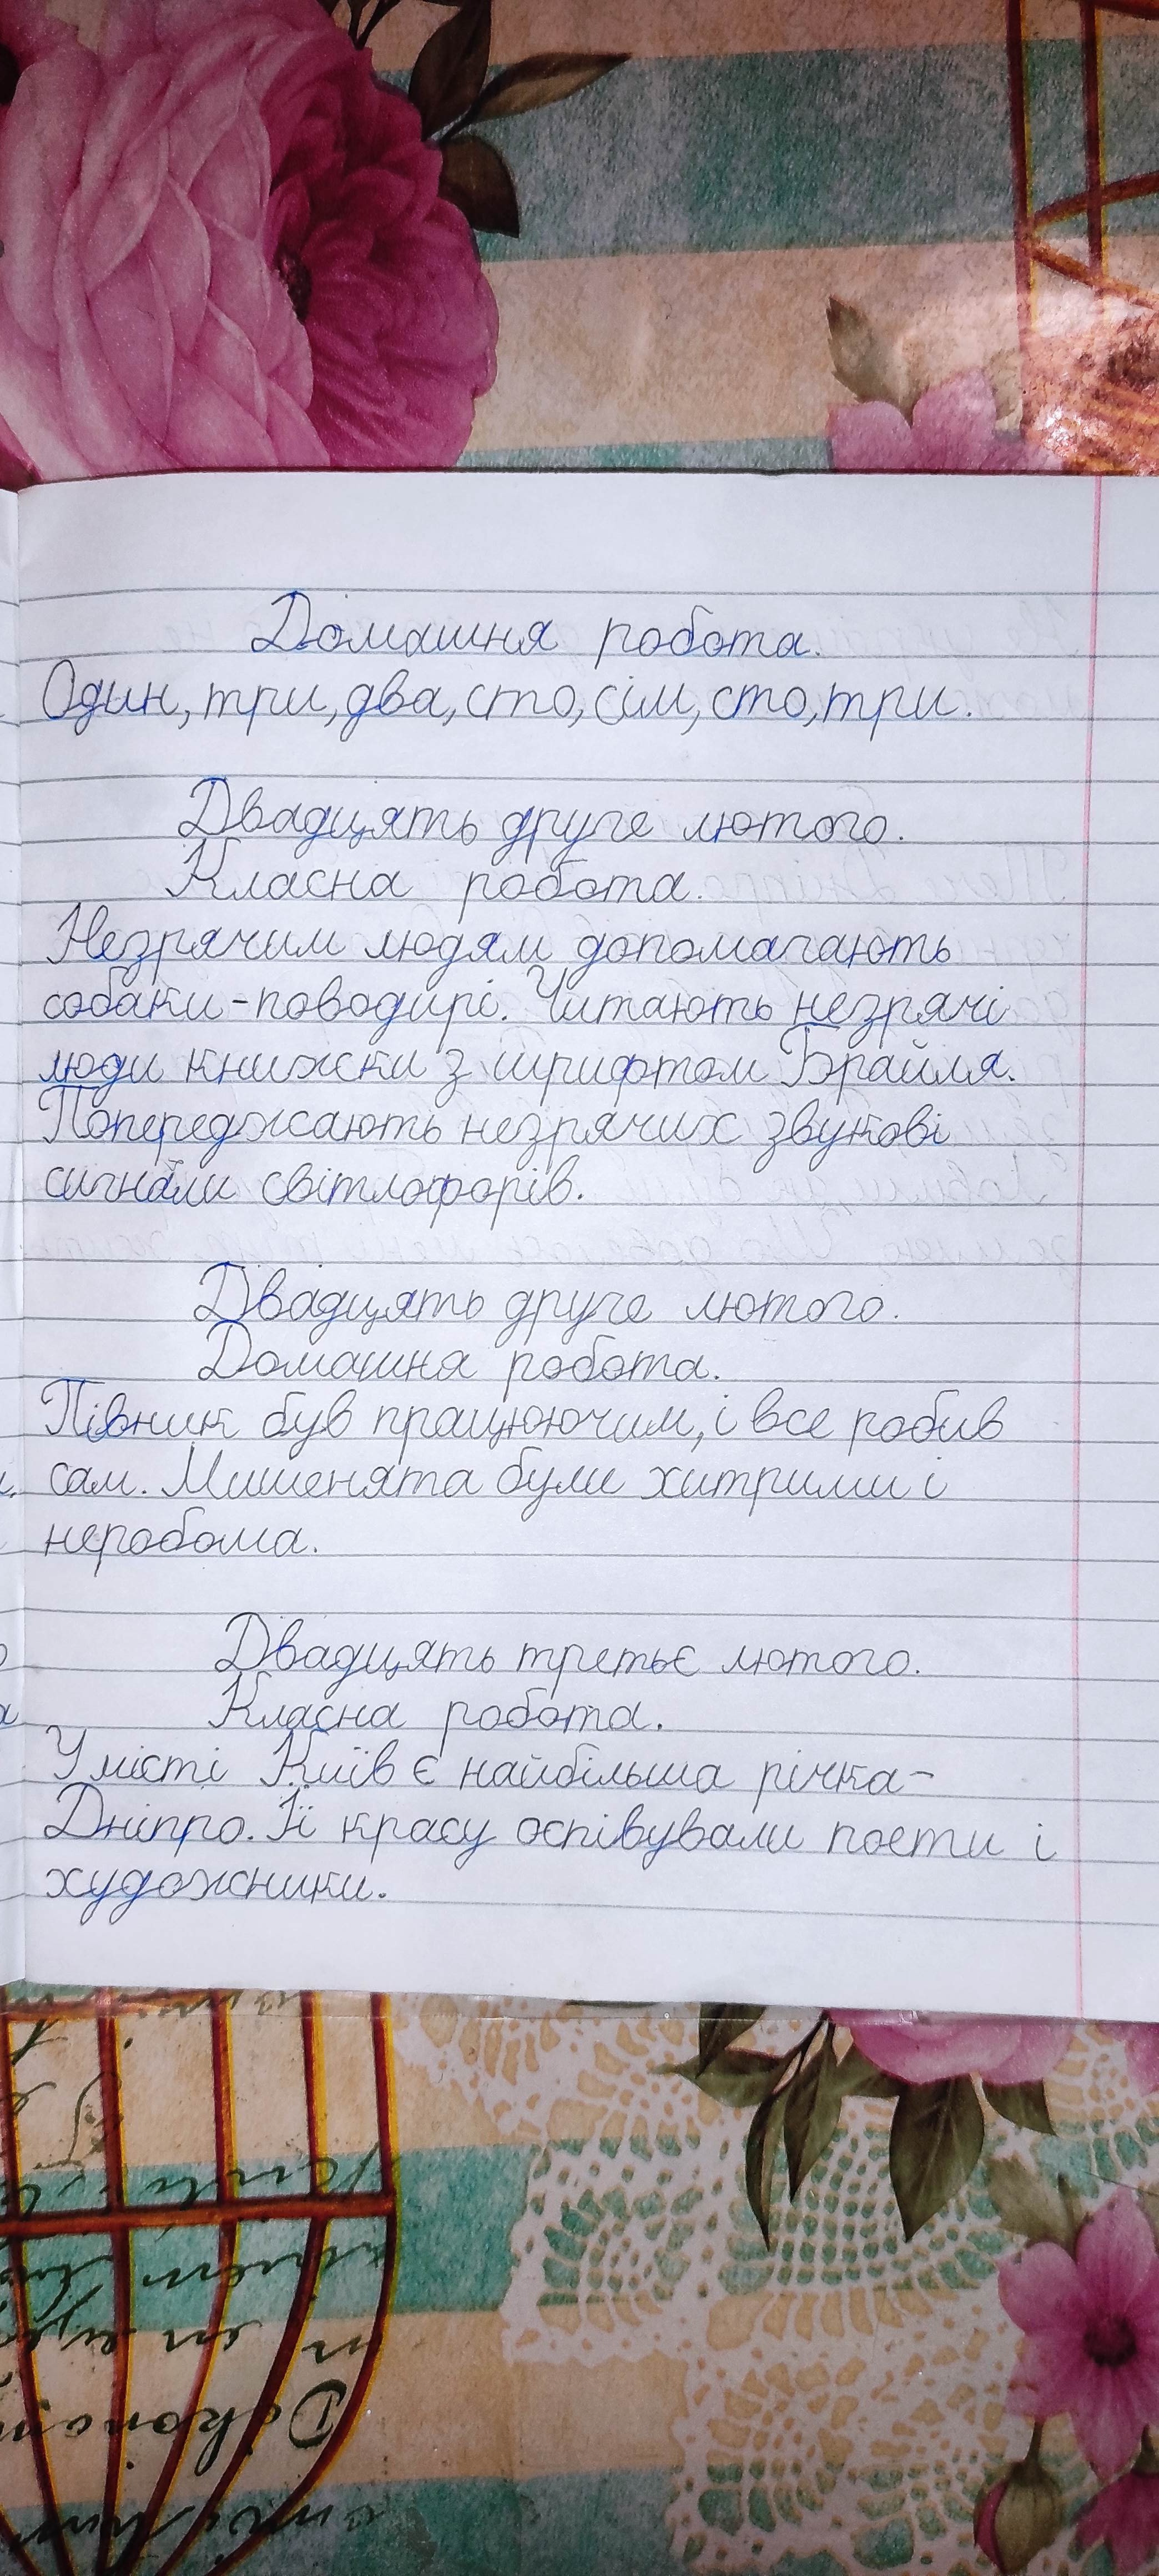 Домашня робота.
Один, три, два, сто, сім, сто, три.
Двадцять друге лютого.
Класна робота.
Незрячим людям допомагають
собаки-поводирі. Читають незрячі
люди книжки з шрифтом Брайля.
Попереджають незрячих звукові
сигнали світлофорів.
Двадцять друге лютого.
Домашня робота.
Півник був працюючим, і все робив
сам. Мишенята були хитрими і
неробома.
Двадцять третьє лютого.
Класна робота.
У місті Київ є найбільша річка-
Дніпро. Її красу оспівували поети і
художники.